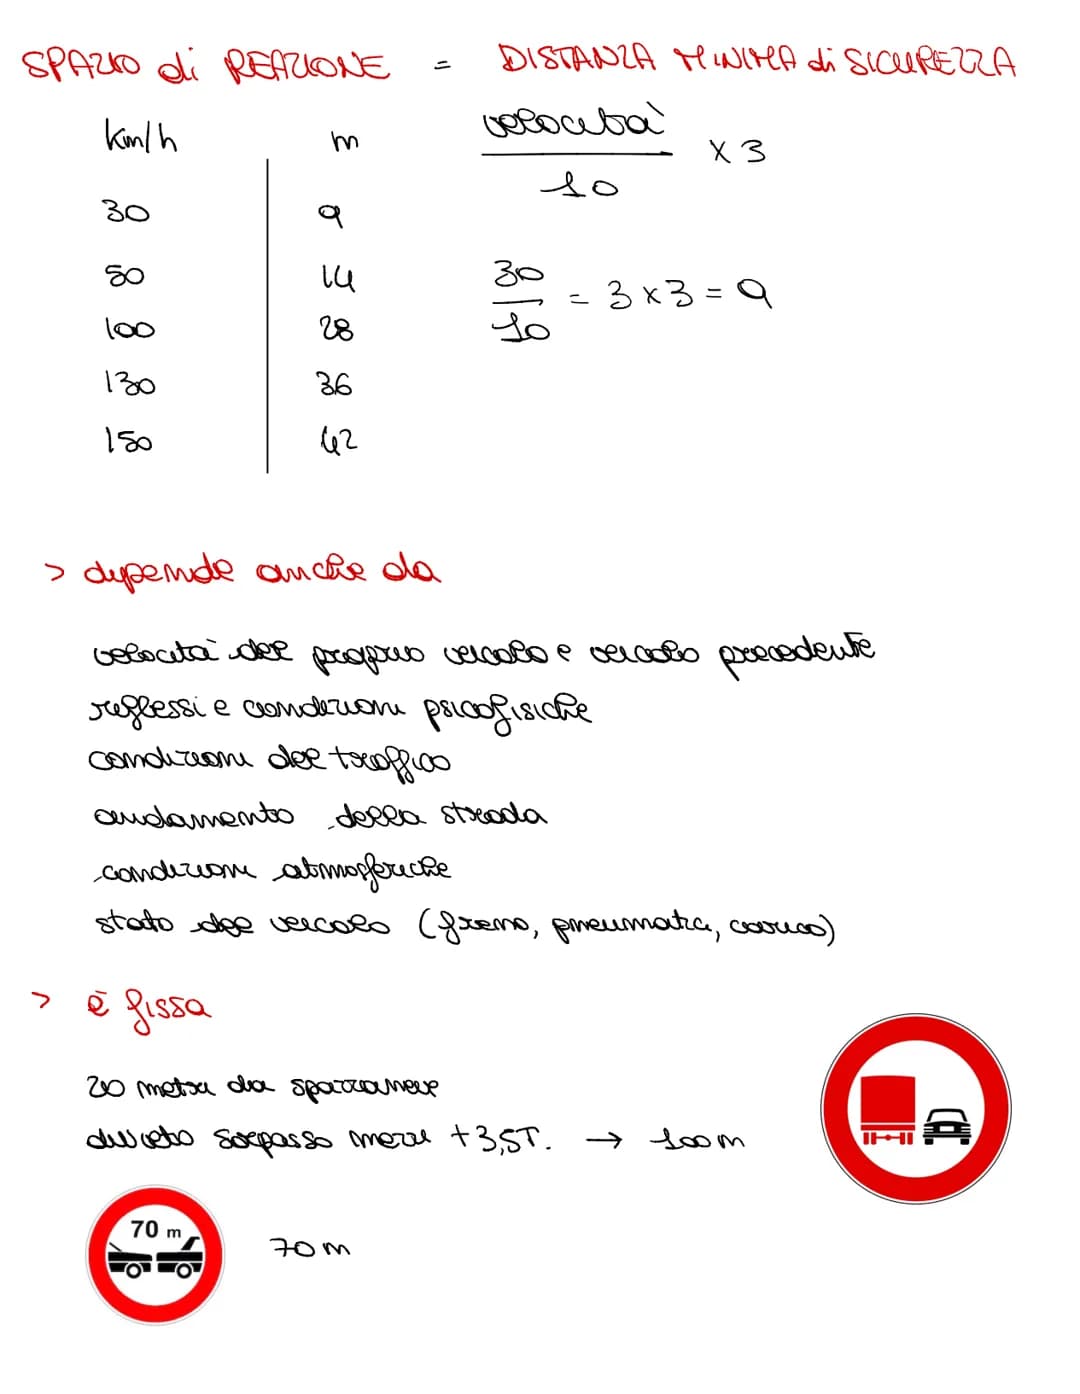 SPAZIO di REAZIONE = DISTANZA MINIMA di SICUREZZA
Km/h m
velocità
10
x 3
30 9
50 14
100 28
130 36
150 42
30
10
= 3 x 3 = 9
> dipende anche da
velocità del proprio veicolo e veicolo precedente
riflessi e condizioni psicofisiche
condizioni del traffico
andamento della strada
condizioni atmosferiche
stato del veicolo (freno, pneumatici, carico)
> è fissa
20 metri da spazzaneve
divieto sorpasso mezzi +3,5T. → 100m
70 m
70m